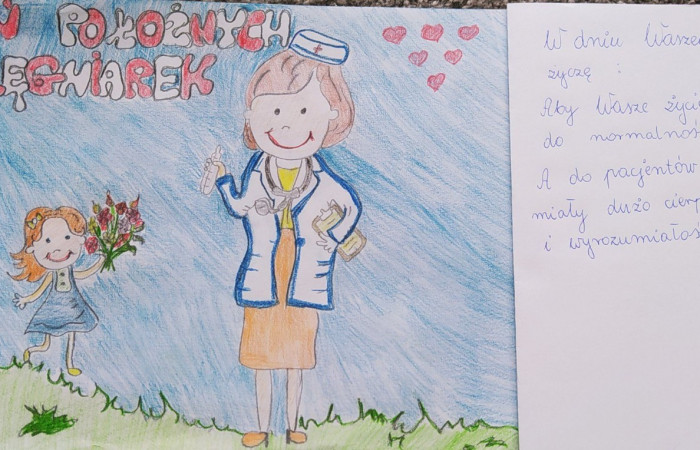 Ń POŁOŻNYCH
LĘGNIAREK
W dniu Wasze
życzę :
Aby Wasze życi
do normalnoś
A do pacjentów
miały dużo cierp
i wyrozumiałoś